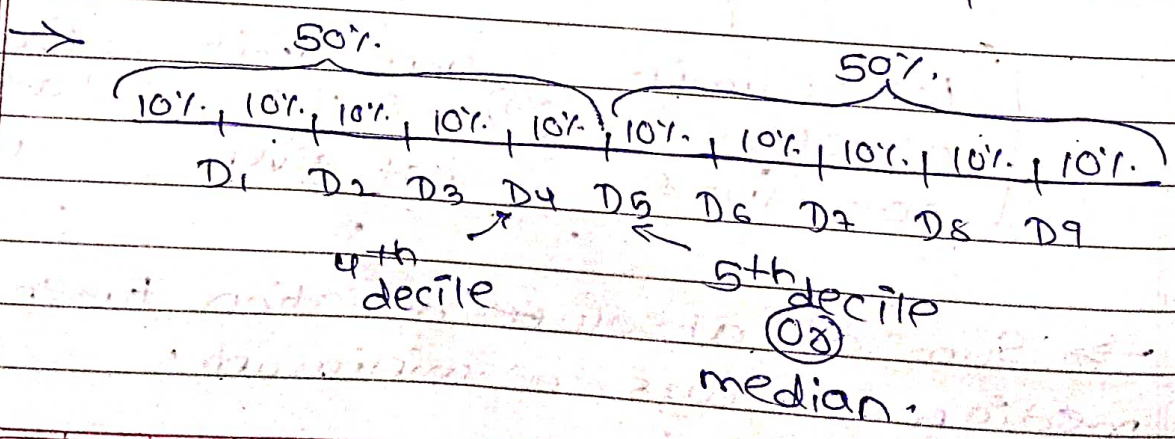 → 50%. 50%.
10%. 10%. 10%. 10%. 10%. 10%. 10%. 10%. 10%. 10%.
D1 D2 D3 D4 D5 D6 D7 D8 D9
4th decile
5th decile
OR
median.